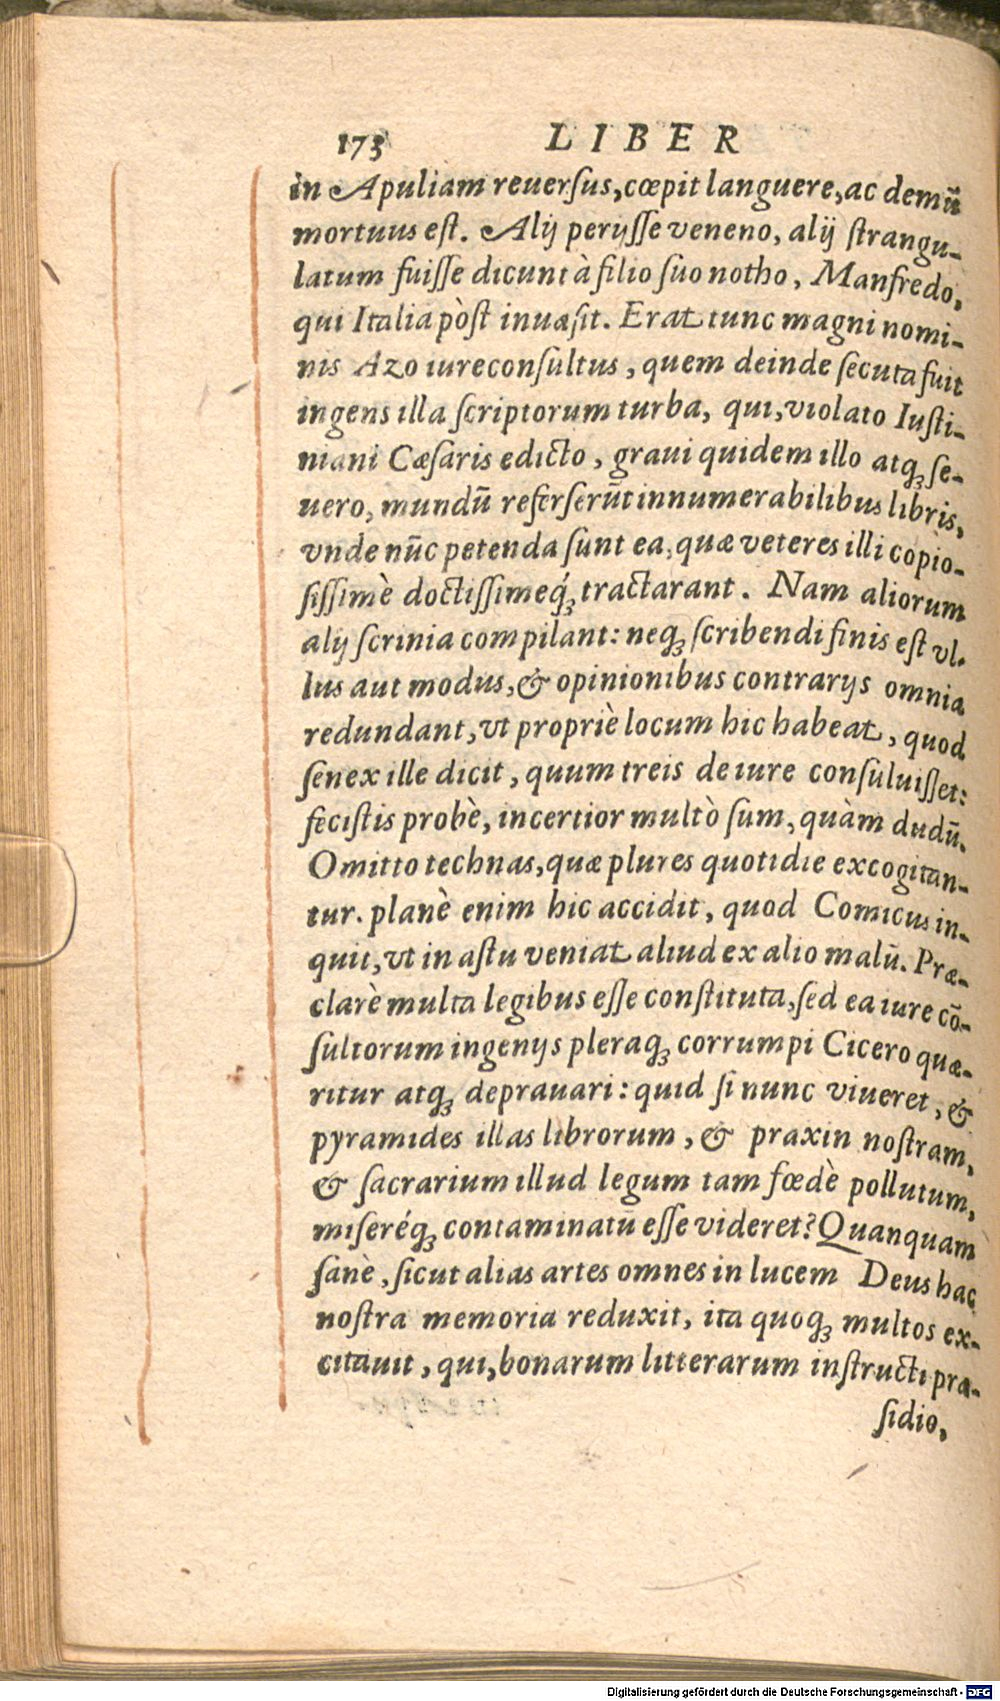 173 LIBER
in Apuliam reuerſus, cœpit languere, ac demū
mortuus eſt. Alij perijſſe veneno, alij ſtrangu-
latum fuiſſe dicunt à filio ſuo notho, Manfredo,
qui Italia pòſt inuaſit. Erat tunc magni nomi-
nis Azo iureconſultus, quem deinde ſecuta fuit
ingens illa ſcriptorum turba, qui, violato Iuſti-
niani Cæſaris edicto, graui quidem illo atqꝫ ſe-
uero, mundū referſerūt innumerabilibus libris,
vnde nūc petenda ſunt ea, quæ veteres illi copio-
ſiſſimè doctiſſimeq́ꝫ tractarant. Nam aliorum
alij ſcrinia compilant: neqꝫ ſcribendi finis eſt vl-
lus aut modus, & opinionibus contrarijs omnia
redundant, vt propriè locum hic habeat, quod
ſenex ille dicit, quum treis de iure conſuluiſſet:
feciſtis probè, incertior multò ſum, quàm dudū.
Omitto technas, quæ plures quotidie excogitan-
tur. planè enim hic accidit, quod Comicus in-
quit, vt in aſtu veniat aliud ex alio malū. Præ-
clarè multa legibus eſſe conſtituta, ſed ea iure cō-
ſultorum ingenijs pleraqꝫ corrumpi Cicero quæ-
ritur atqꝫ deprauari: quid ſi nunc viueret, &
pyramides illas librorum, & praxin noſtram,
& ſacrarium illud legum tam fœdè pollutum,
miſeréqꝫ contaminatū eſſe videret? Quanquam
ſanè, ſicut alias artes omnes in lucem Deus hac
noſtra memoria reduxit, ita quoqꝫ multos ex-
citauit, qui, bonarum litterarum inſtructi præ-
ſidio,
Digitalisierung gefördert durch die Deutsche Forschungsgemeinschaft - DFG